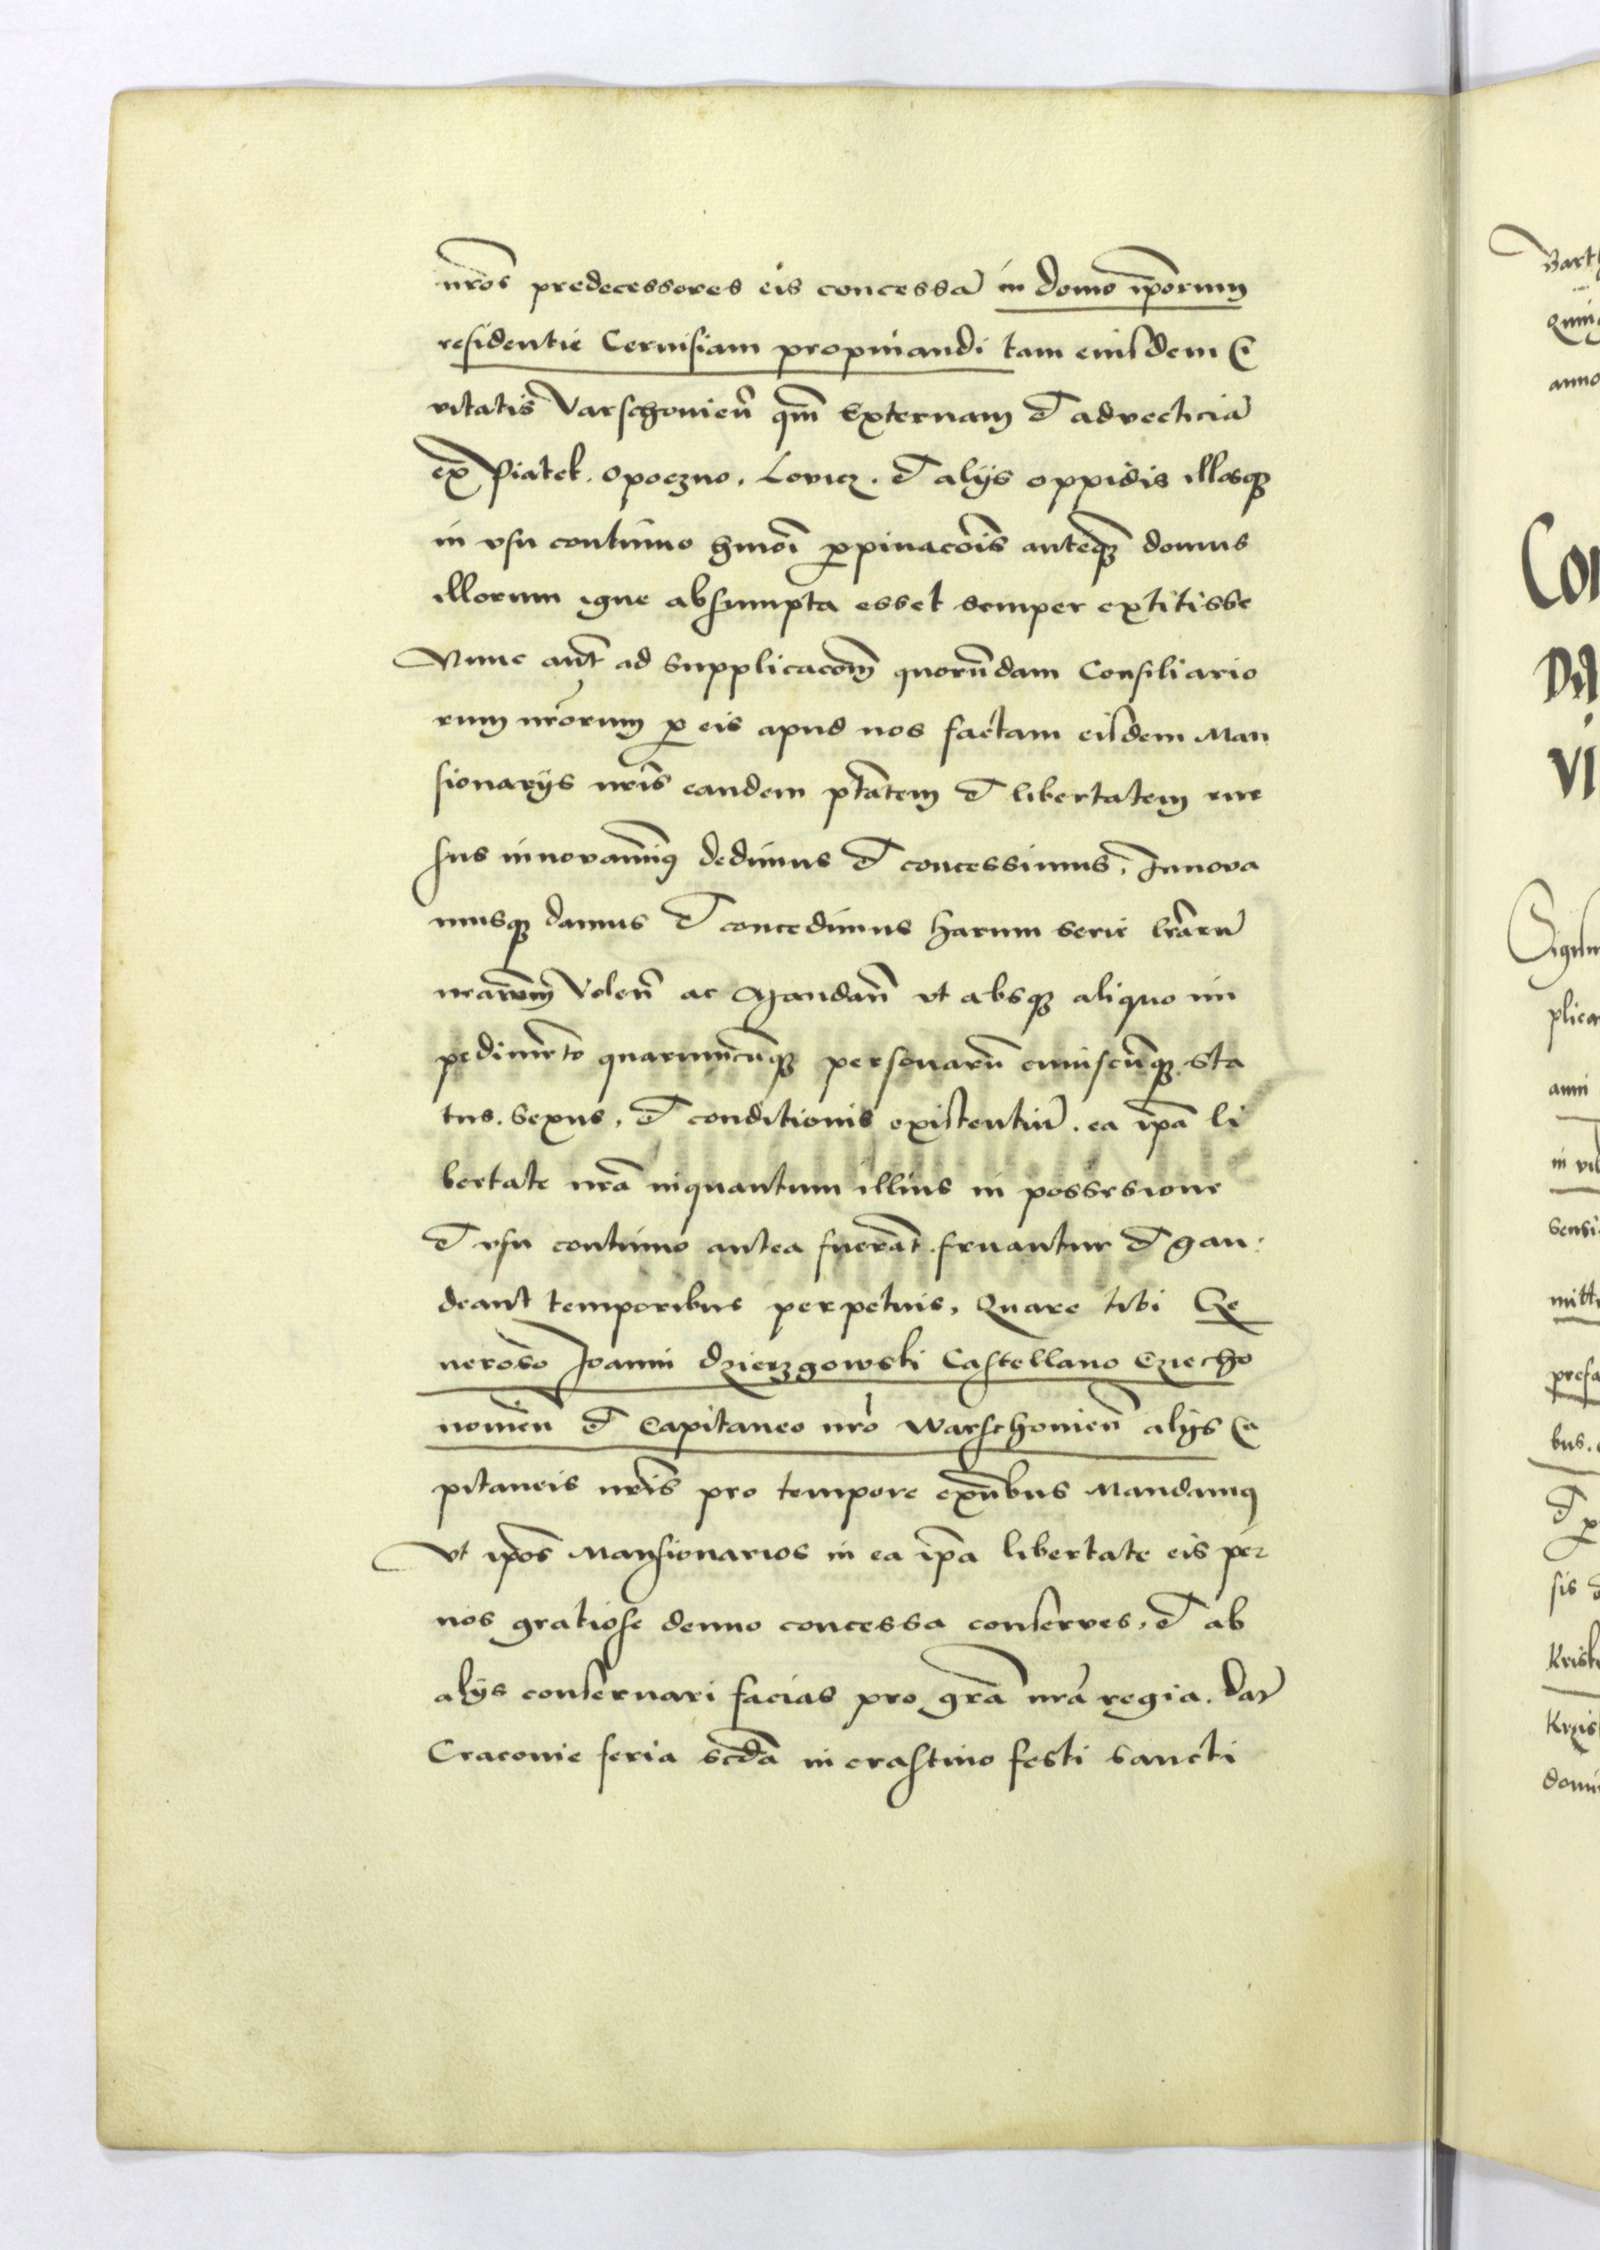 nros predecessores eis concessā in domo ip̄orum
residentie Cervisiam propinandi tam eiusdem Ci
vitatis Varschovień qm̄ Externam et advecticiā
ex Piatek. Opoczno. Lovicz. et alijs oppidis illosq3
in usu continuo hmōi ꝓpinacōis anteq3 domus
illorum igne absumpta esset semper extitisse
Nunc aūt ad supplicacōm quorūdam Consiliario
rum nr̄orum ꝓ eis apud nos factam eisdem Man
sionarijs nr̄is eandem ptātem et libertatem rur
sus innovavimus dedimus et concessimus, Innova
musq3 damus et concedimus harum serie lr̄arū
nr̄arum Voleń ac Mandań ut absq3 aliquo im
pedimēto quarumcūq3 personarū cuiuscūq3 sta
tus. sexus, et conditionis existentiū. ea ip̄a li
bertate nr̄a inquantum illius in possessione
et usu continuo antea fuerāt. fruantur et gau:
deant temporibus perpetuis, Quare tibi Ge
neroso Joanni Dzierzgowski Castellano Cziecho
novień et Capitaneo nr̄o Warschovień alijs Ca
pitaneis nr̄is pro tempore exn̄tibus Mandamus
Ut ip̄os Mansionarios in ea ip̄a libertate eis per
nos gratiose denuo concessa conserves, et ab
alijs conservari facias pro gr̄a nr̄a regia. Dat̄
Cracovie feria scd̄a in crastino festi sancti